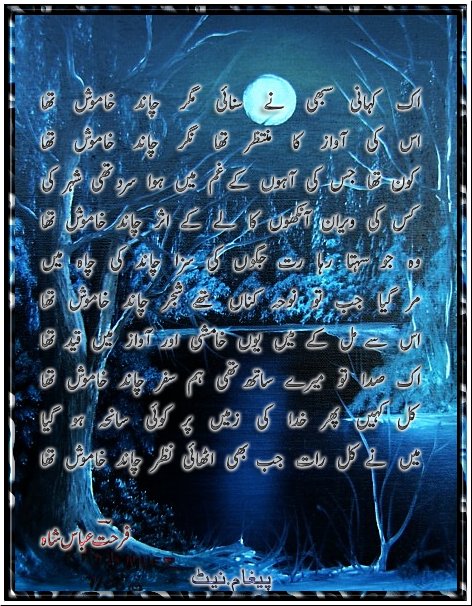 اک کہانی سبھی نے سنائی مگر چاند خاموش تھا
اس کی آواز کا منتظر تھا نگر چاند خاموش تھا
کون تھا جس کی آہوں کے غم میں ہوا سرد تھی شہر کی
کس کی ویران آنکھوں کا لے کے اثر چاند خاموش تھا
وہ جو سہتا رہا رت جگوں کی سزا چاند کی چاہ میں
مر گیا جب تو نوحہ کناں تھے شجر چاند خاموش تھا
اس سے مل کے میں یوں خامشی اور آواز میں قید تھا
اک صدا تو میرے ساتھ تھی ہم سفر چاند خاموش تھا
کل کہیں پھر خدا کی زمیں پر کوئی سانحہ ہو گیا
میں نے کل رات جب بھی اٹھائی نظر چاند خاموش تھا
فرحت عباس شاہ
پیغام.نیٹ